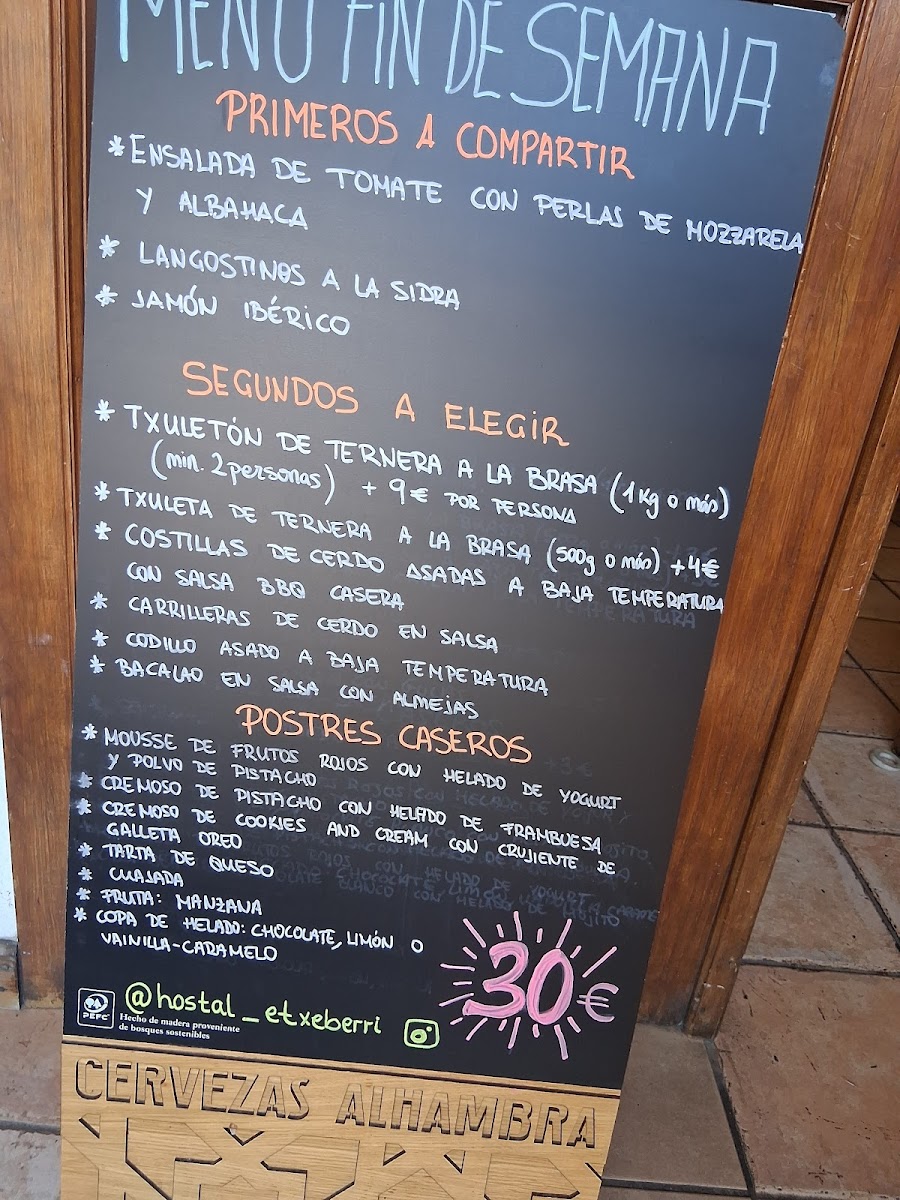 MENÚ FIN DE SEMANA
PRIMEROS A COMPARTIR
* ENSALADA DE TOMATE CON PERLAS DE MOZZARELA
Y ALBAHACA
* LANGOSTINOS A LA SIDRA
* JAMÓN IBÉRICO
SEGUNDOS A ELEGIR
* TXULETÓN DE TERNERA A LA BRASA (1Kg o más)
(min. 2 personas) + 9€ POR PERSONA
* TXULETA DE TERNERA A LA BRASA (500g o más) +4€
* COSTILLAS DE CERDO ASADAS A BAJA TEMPERATURA
CON SALSA BBQ CASERA
* CARRILLERAS DE CERDO EN SALSA
* CODILLO ASADO A BAJA TEMPERATURA
* BACALAO EN SALSA CON ALMEJAS
POSTRES CASEROS
* MOUSSE DE FRUTOS ROJOS CON HELADO DE YOGURT
Y POLVO DE PISTACHO
* CREMOSO DE PISTACHO CON HELADO DE FRAMBUESA
* CREMOSO DE COOKIES AND CREAM CON CRUJIENTE DE
GALLETA OREO
* TARTA DE QUESO
* CUAJADA
* FRUTA: MANZANA
* COPA DE HELADO: CHOCOLATE, LIMÓN O
VAINILLA-CARAMELO
30€
@hostal_etxeberri
PEFC
Hecho de madera proveniente
de bosques sostenibles
CERVEZAS ALHAMBRA